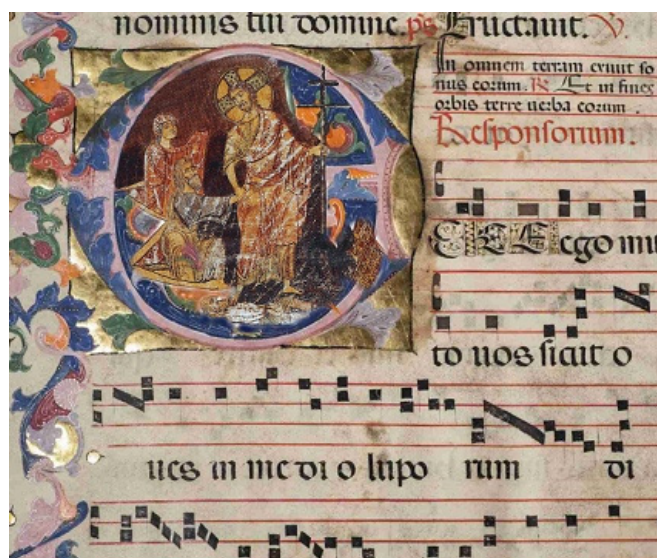 nominis tui domine. ps Eructauit. V.
In omnem terram exiuit so
nus eorum. R Et in fines
orbis terre uerba eorum.
Responsorium.
CCE Ego mit
to uos sicut o
ues in me di o lupo rum di